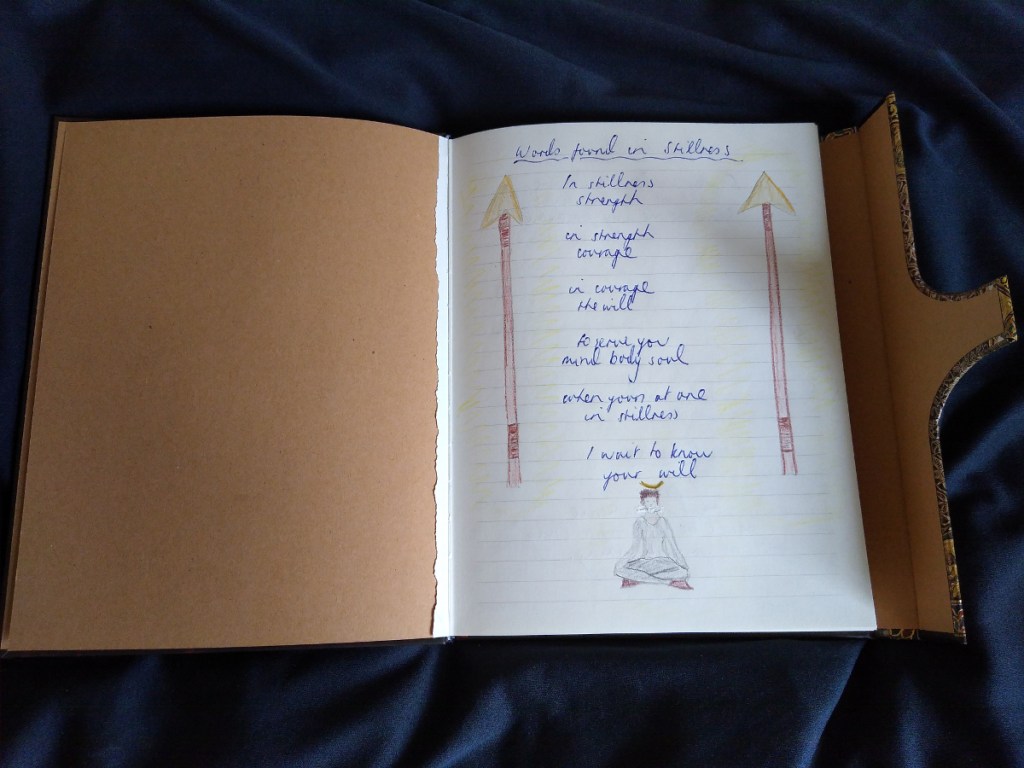 Words found in Stillness
In stillness
strength
in strength
courage
in courage
the will
to serve you
mind body soul
when yours at one
in stillness
I wait to know
your will